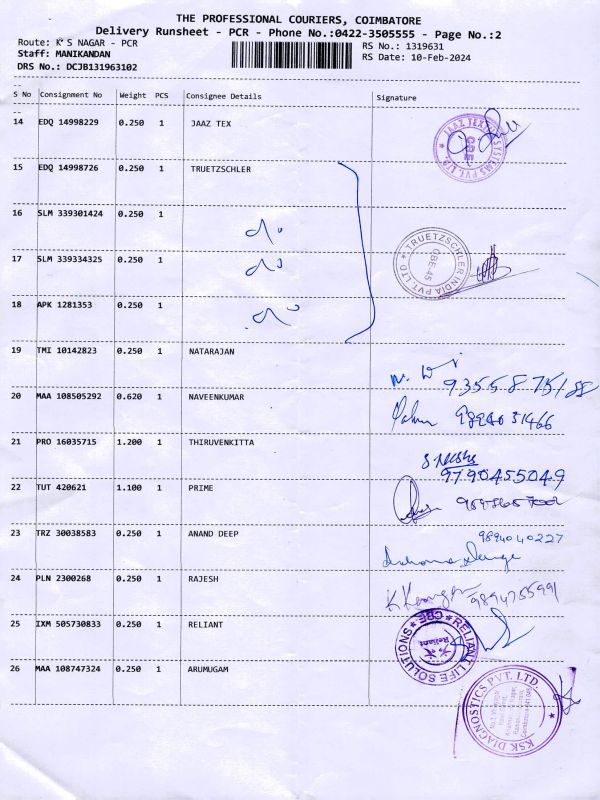 THE PROFESSIONAL COURIERS, COIMBATORE
Delivery Runsheet - PCR - Phone No.:0422-3505555 - Page No.:2
Route: K S NAGAR - PCR
RS No.: 1319631
Staff: MANIKANDAN
RS Date: 10-Feb-2024
DRS No.: DCJB131963102
S No Consignment No Weight PCS Consignee Details Signature
14 EDQ 14998229 0.250 1 JAAZ TEX
JAAZ TEX SYSTEMS PVT. LTD. CBE
15 EDQ 14998726 0.250 1 TRUETZSCHLER
16 SLM 339301424 0.250 1
17 SLM 339334325 0.250 1
TRUETZSCHLER INDIA PVT. LTD CBE-45
18 APK 1281353 0.250 1
19 TMI 10142823 0.250 1 NATARAJAN
20 MAA 108505292 0.620 1 NAVEENKUMAR
21 PRO 16035715 1.200 1 THIRUVENKITTA
9790455049
22 TUT 420621 1.100 1 PRIME
23 TRZ 30038583 0.250 1 ANAND DEEP
9894040227
24 PLN 2300268 0.250 1 RAJESH
9894755991
25 IXM 505730833 0.250 1 RELIANT
RELIANT LIFE SOLUTIONS CBE
Reliant
26 MAA 108747324 0.250 1 ARUMUGAM
KSK DIAGNOSTICS PVT. LTD.